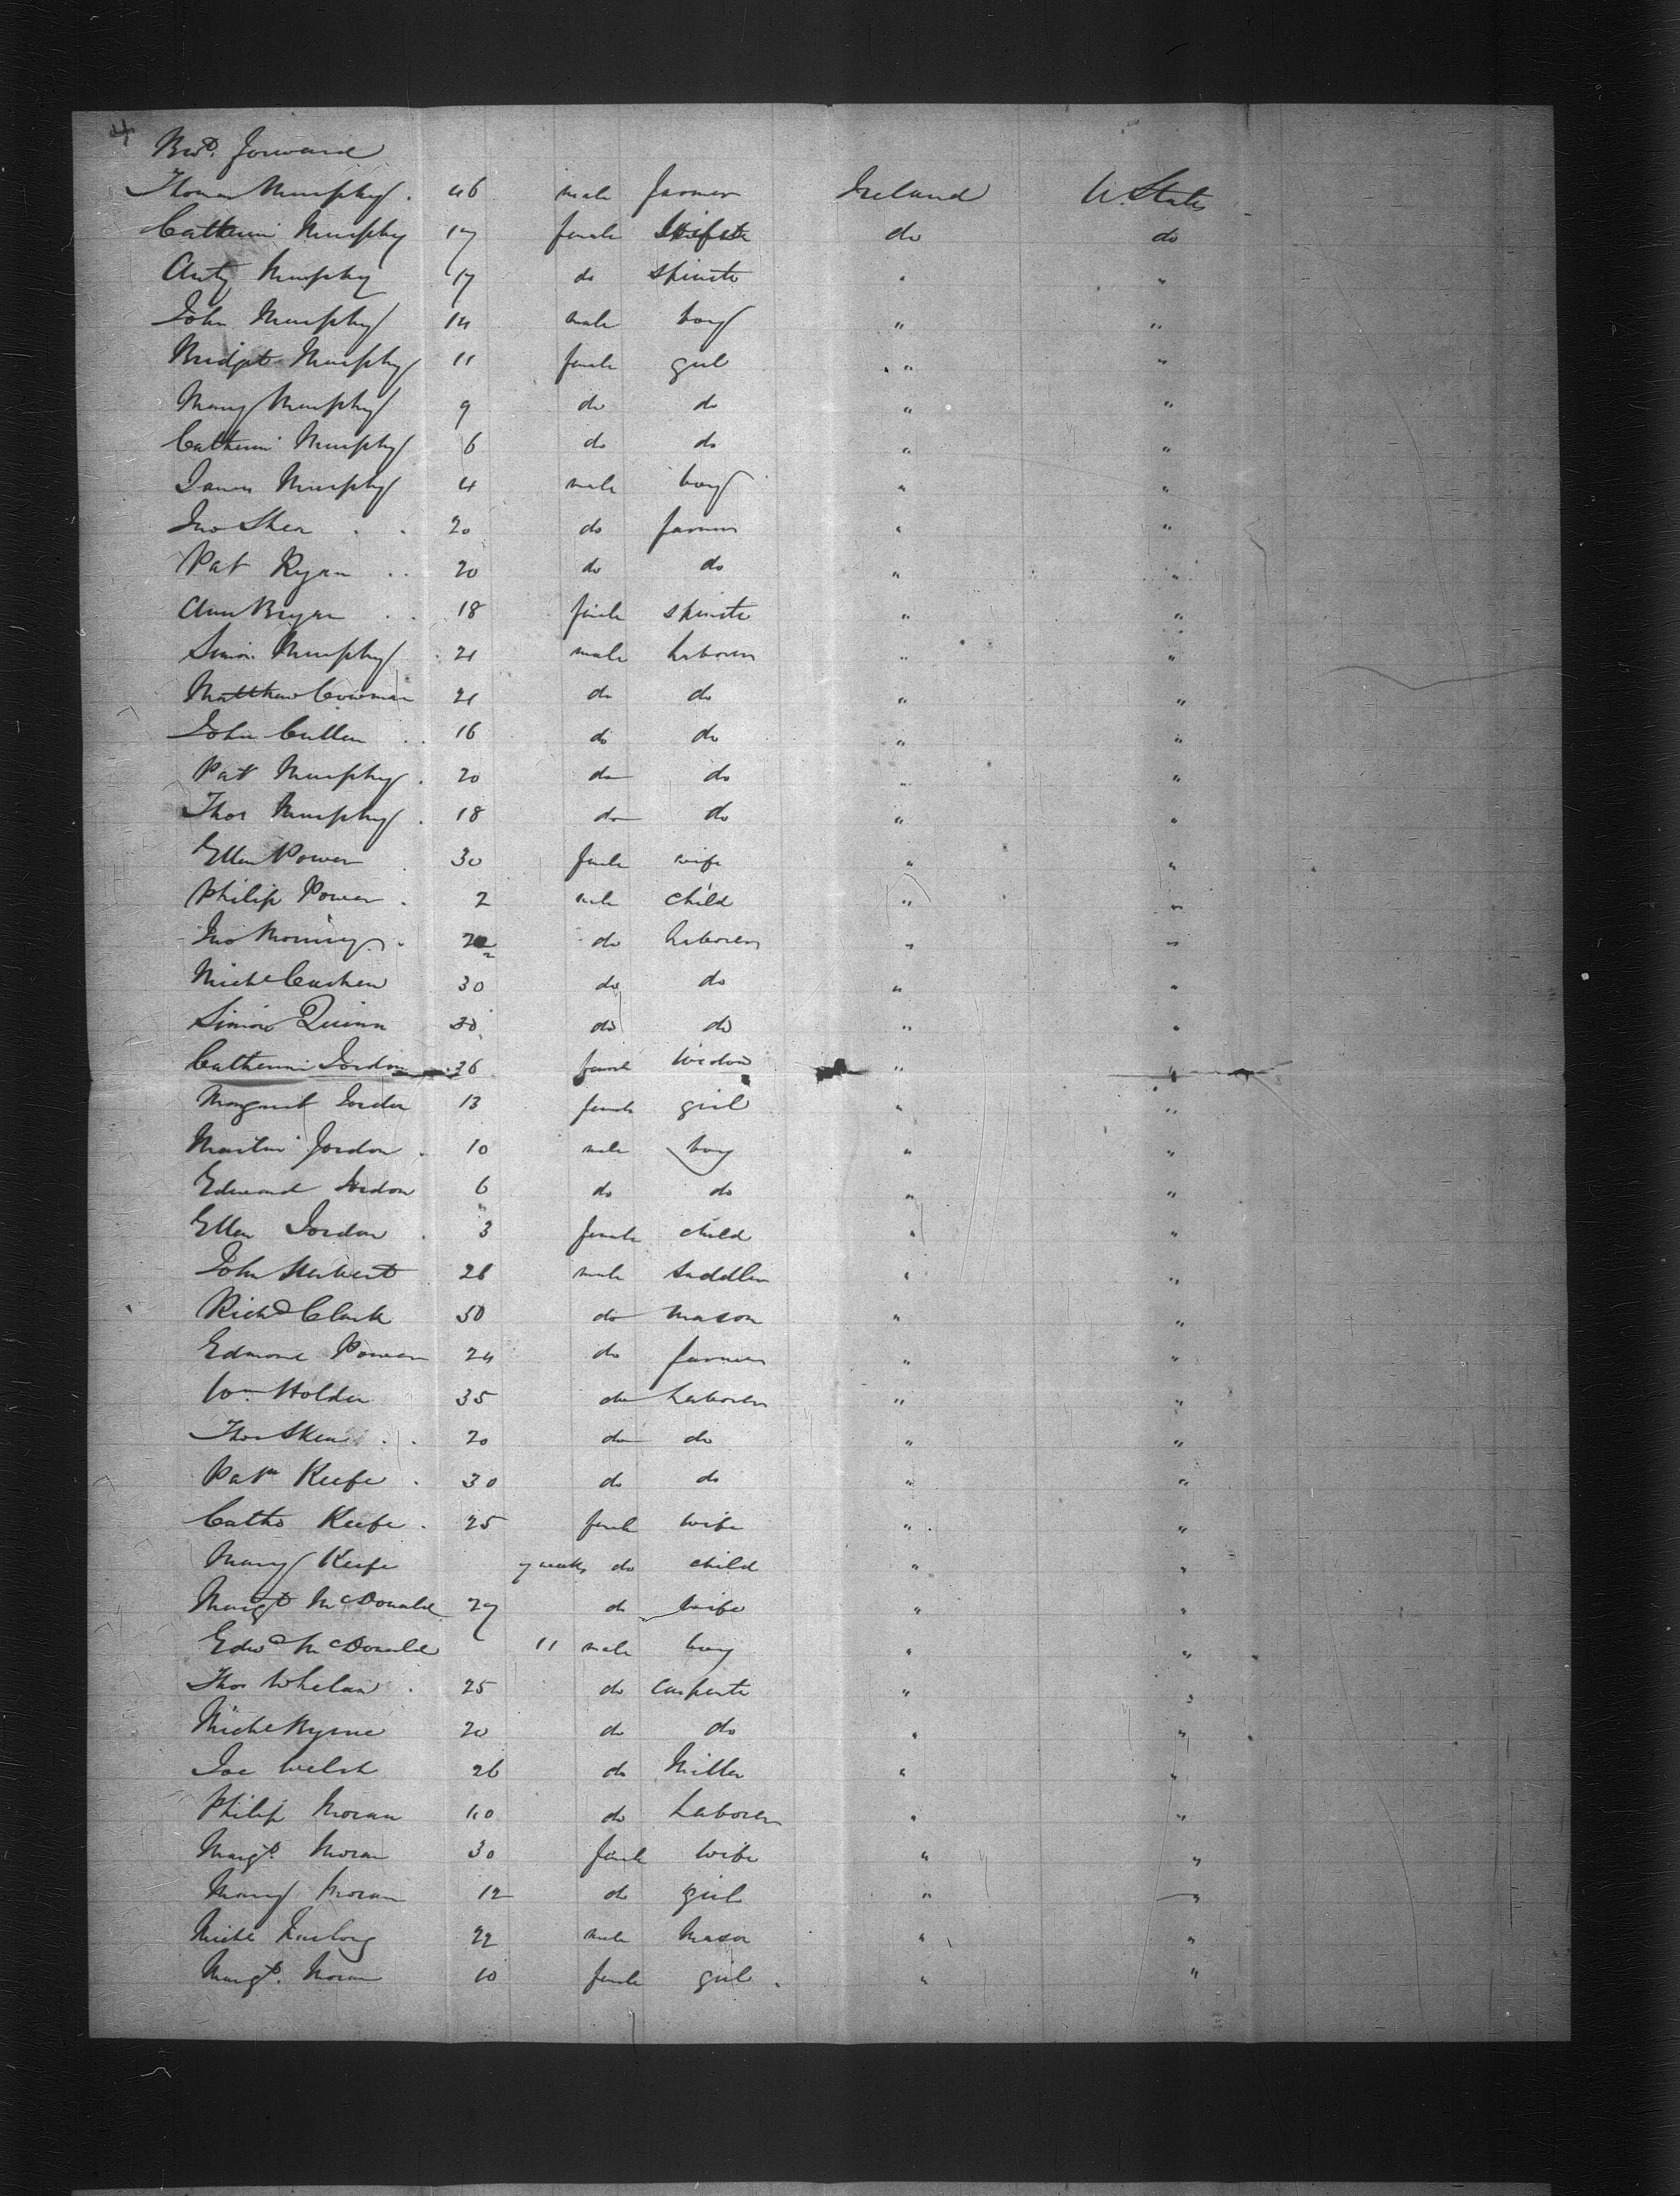 4
Brot. forward
Thomas Murphy . 46 male farmer Ireland U. States
Catherine Murphy 17 female do do
Murphy 17 do spinster " "
John Murphy 14 male boy " "
Bridget Murphy 11 female girl " "
Mary Murphy 9 do do " "
Catherine Murphy 6 do do " "
James Murphy 4 male boy " "
Jno Shea . . 20 do farmer " "
Pat Ryan . . 20 do do " "
Ann Bryan . . 18 female spinster " "
Simon Murphy . 21 male Laborer " "
Matthew Cowman 21 do do " "
John Cullen . . 16 do do " "
Pat Murphy . 20 do do " "
Thos Murphy . 18 do do " "
Ellen Power . 30 female wife " "
Philip Power . 2 male child " "
Jno . do Laborer " "
Michl Cashen 30 do do " "
Simon Quinn 30 do do " "
Catherine Jordon 36 female widow " "
Margaret Jordon 13 female girl " "
Martin Jordon . 10 male boy " "
Edward Jordon 6 do do " "
Ellen Jordon . 3 female child " "
John Herbert 26 male Saddler " "
Richd Clark 50 do mason " "
Edmond Power 24 do farmer " "
Wm Holden 35 do Laborer " "
Thos Shea . . 20 do do " "
Patk Keefe . 30 do do " "
Cathe Keefe . 25 female wife " "
Mary Keefe 7 weeks do child " "
Margt McDonald 27 do wife " "
Edwd McDonald 11 male boy " "
Thos Whelan . 25 do Carpenter " "
Michl Byrne 20 do do " "
Joe Welsh 26 do Miller " "
Philip Moran 40 do Laborer " "
Margt. Moran 30 female wife " "
Mary Moran 12 do girl " "
Michl Furlong 22 male Mason " "
Margt. Moran 10 female girl . " "